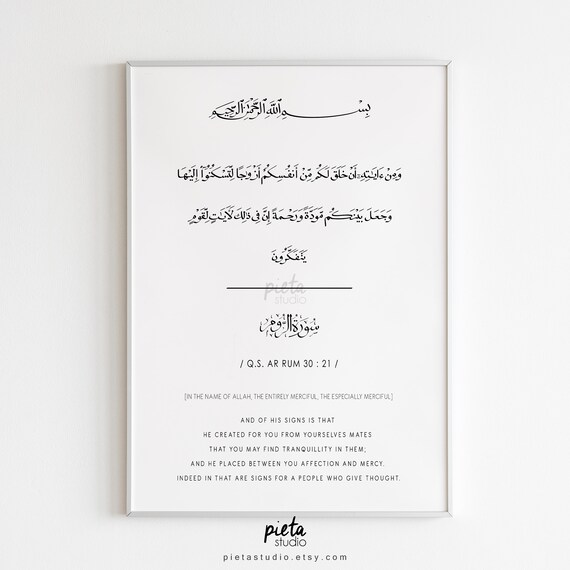 بِسْمِ اللَّهِ الرَّحْمَٰنِ الرَّحِيمِ
وَمِنْ ءَايَٰتِهِۦٓ أَنْ خَلَقَ لَكُم مِّنْ أَنفُسِكُمْ أَزْوَٰجًا لِّتَسْكُنُوٓا۟ إِلَيْهَا
وَجَعَلَ بَيْنَكُم مَّوَدَّةً وَرَحْمَةً إِنَّ فِى ذَٰلِكَ لَءَايَٰتٍ لِّقَوْمٍ
يَتَفَكَّرُونَ
pieta
studio
سُورَةُ الرُّومِ
/ Q.S. AR RUM 30 : 21 /
[IN THE NAME OF ALLAH, THE ENTIRELY MERCIFUL, THE ESPECIALLY MERCIFUL]
AND OF HIS SIGNS IS THAT
HE CREATED FOR YOU FROM YOURSELVES MATES
THAT YOU MAY FIND TRANQUILLITY IN THEM;
AND HE PLACED BETWEEN YOU AFFECTION AND MERCY.
INDEED IN THAT ARE SIGNS FOR A PEOPLE WHO GIVE THOUGHT.
pieta
studio
pietastudio.etsy.com